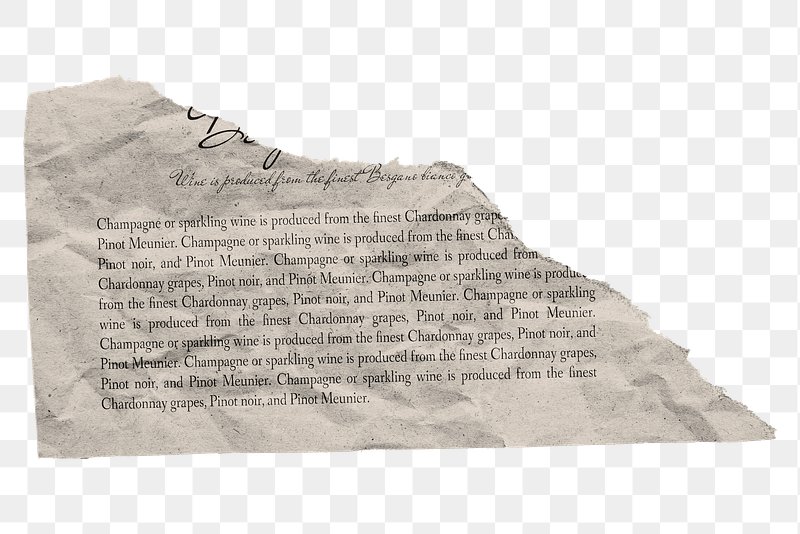 Wine is produced from the finest Besgano bianco g
Champagne or sparkling wine is produced from the finest Chardonnay grape
Pinot Meunier. Champagne or sparkling wine is produced from the finest Char
Pinot noir, and Pinot Meunier. Champagne or sparkling wine is produced from
Chardonnay grapes, Pinot noir, and Pinot Meunier. Champagne or sparkling wine is produce
from the finest Chardonnay grapes, Pinot noir, and Pinot Meunier. Champagne or sparkling
wine is produced from the finest Chardonnay grapes, Pinot noir, and Pinot Meunier.
Champagne or sparkling wine is produced from the finest Chardonnay grapes, Pinot noir, and
Pinot Meunier. Champagne or sparkling wine is produced from the finest Chardonnay grapes,
Pinot noir, and Pinot Meunier. Champagne or sparkling wine is produced from the finest
Chardonnay grapes, Pinot noir, and Pinot Meunier.